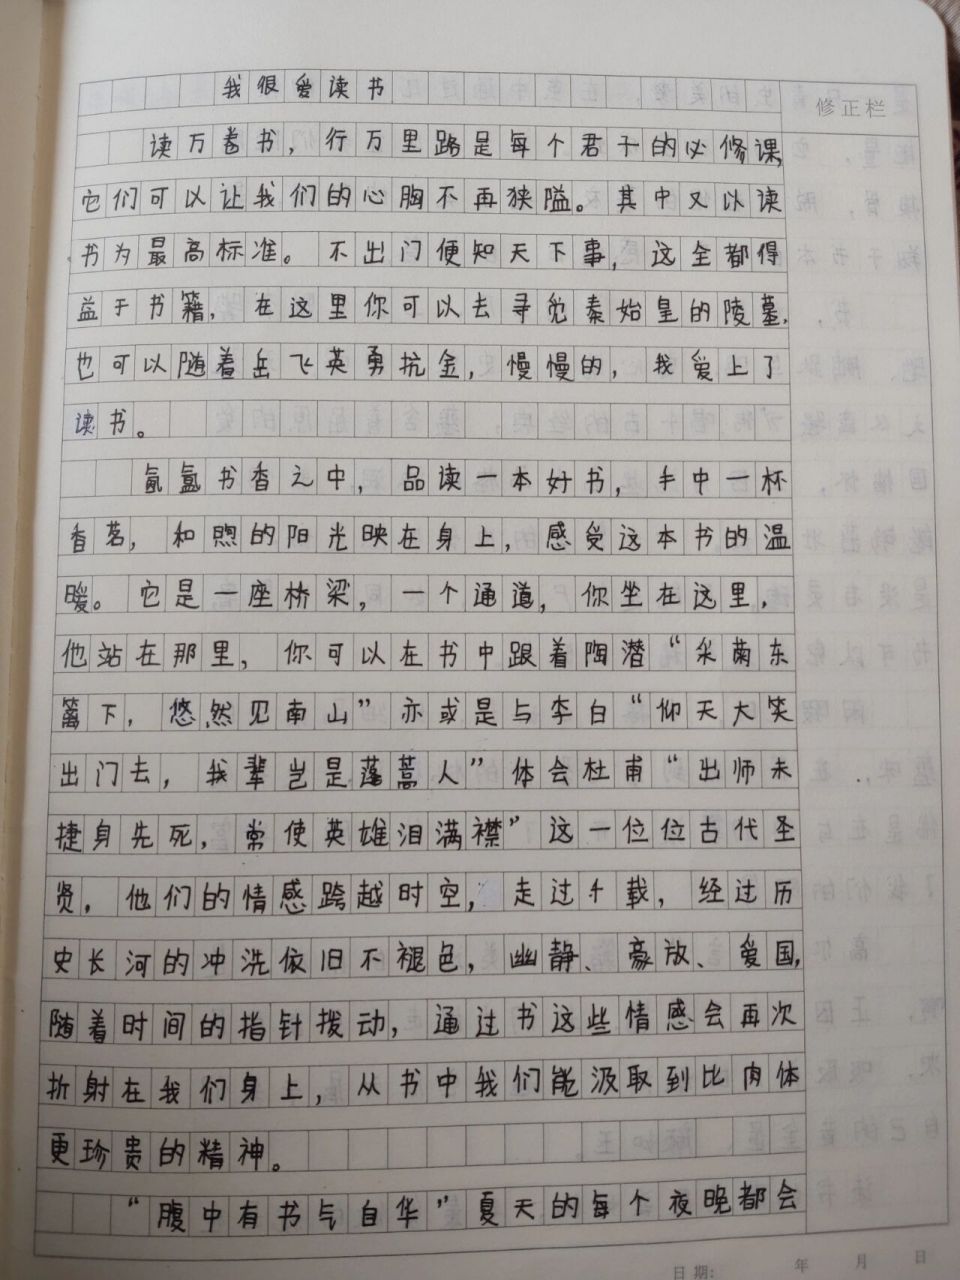 我很爱读书
修正栏
读万卷书，行万里路是每个君子的必修课，
它们可以让我们的心胸不再狭隘。其中又以读
书为最高标准。不出门便知天下事，这全都得
益于书籍，在这里你可以去寻觅秦始皇的陵墓，
也可以随着岳飞英勇抗金，慢慢的，我爱上了
读书。
氤氲书香之中，品读一本好书，手中一杯
香茗，和煦的阳光映在身上，感受这本书的温
暖。它是一座桥梁，一个通道，你坐在这里，
他站在那里，你可以在书中跟着陶潜“采菊东
篱下，悠然见南山”亦或是与李白“仰天大笑
出门去，我辈岂是蓬蒿人”体会杜甫“出师未
捷身先死，常使英雄泪满襟”这一位位古代圣
贤，他们的情感跨越时空，走过千载，经过历
史长河的冲洗依旧不褪色，幽静、豪放、爱国，
随着时间的指针拨动，通过书这些情感会再次
折射在我们身上，从书中我们能汲取到比肉体
更珍贵的精神。
“腹中有书气自华”夏天的每个夜晚都会
日期： 年 月 日